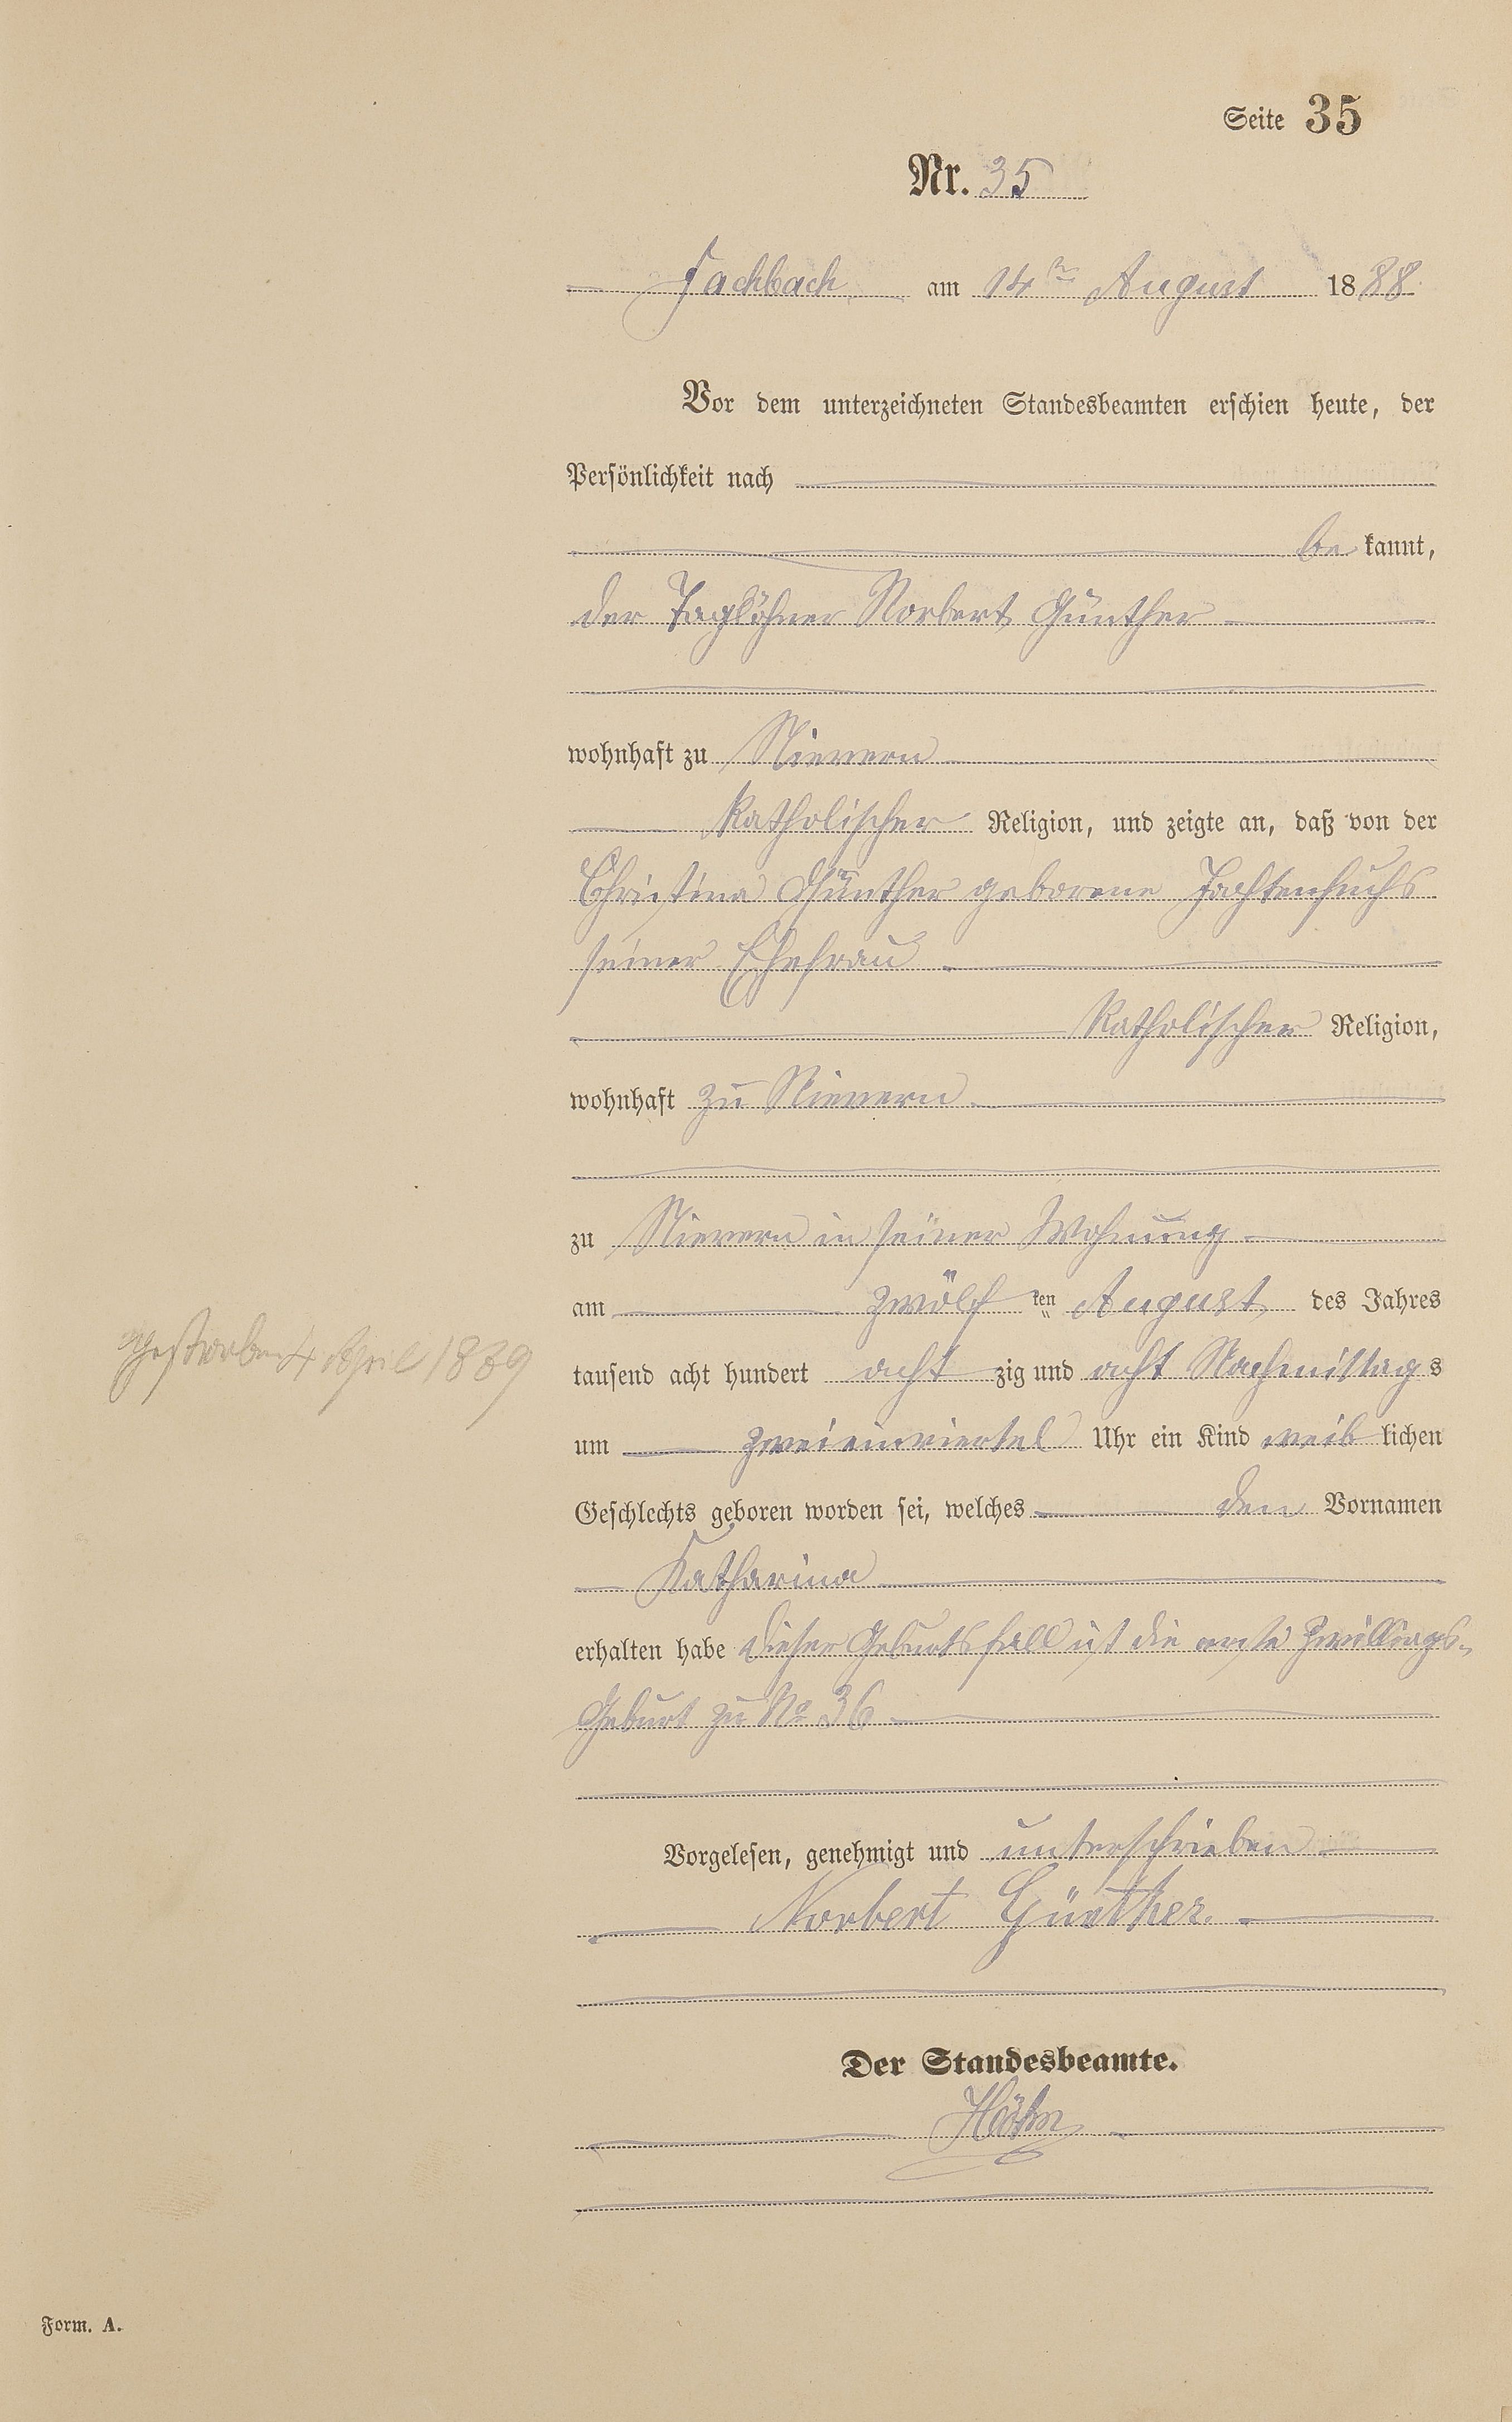 Seite 35
Nr. 35
Fachbach am 14ten August 1888
Vor dem unterzeichneten Standesbeamten erschien heute, der
Persönlichkeit nach
be kannt,
der Taglöhner Norbert Günther
wohnhaft zu Nievern
katholischer Religion, und zeigte an, daß von der
Christina Günther geborene
seiner Ehefrau
katholischer Religion,
wohnhaft zu Nievern
zu Nievern in seiner Wohnung
am zwölf ten August des Jahres
tausend acht hundert acht zig und acht Nachmittags
um zweieinviertel Uhr ein Kind weiblichen
Geschlechts geboren worden sei, welches den Vornamen
Katharina
erhalten habe dieser Geburtsfall ist die erste Zwillings-
Geburt zu No 36
Gestorben 4 April 18
Vorgelesen, genehmigt und unterschrieben
Norbert Günther.
Der Standesbeamte.
Höhn
Form. A.